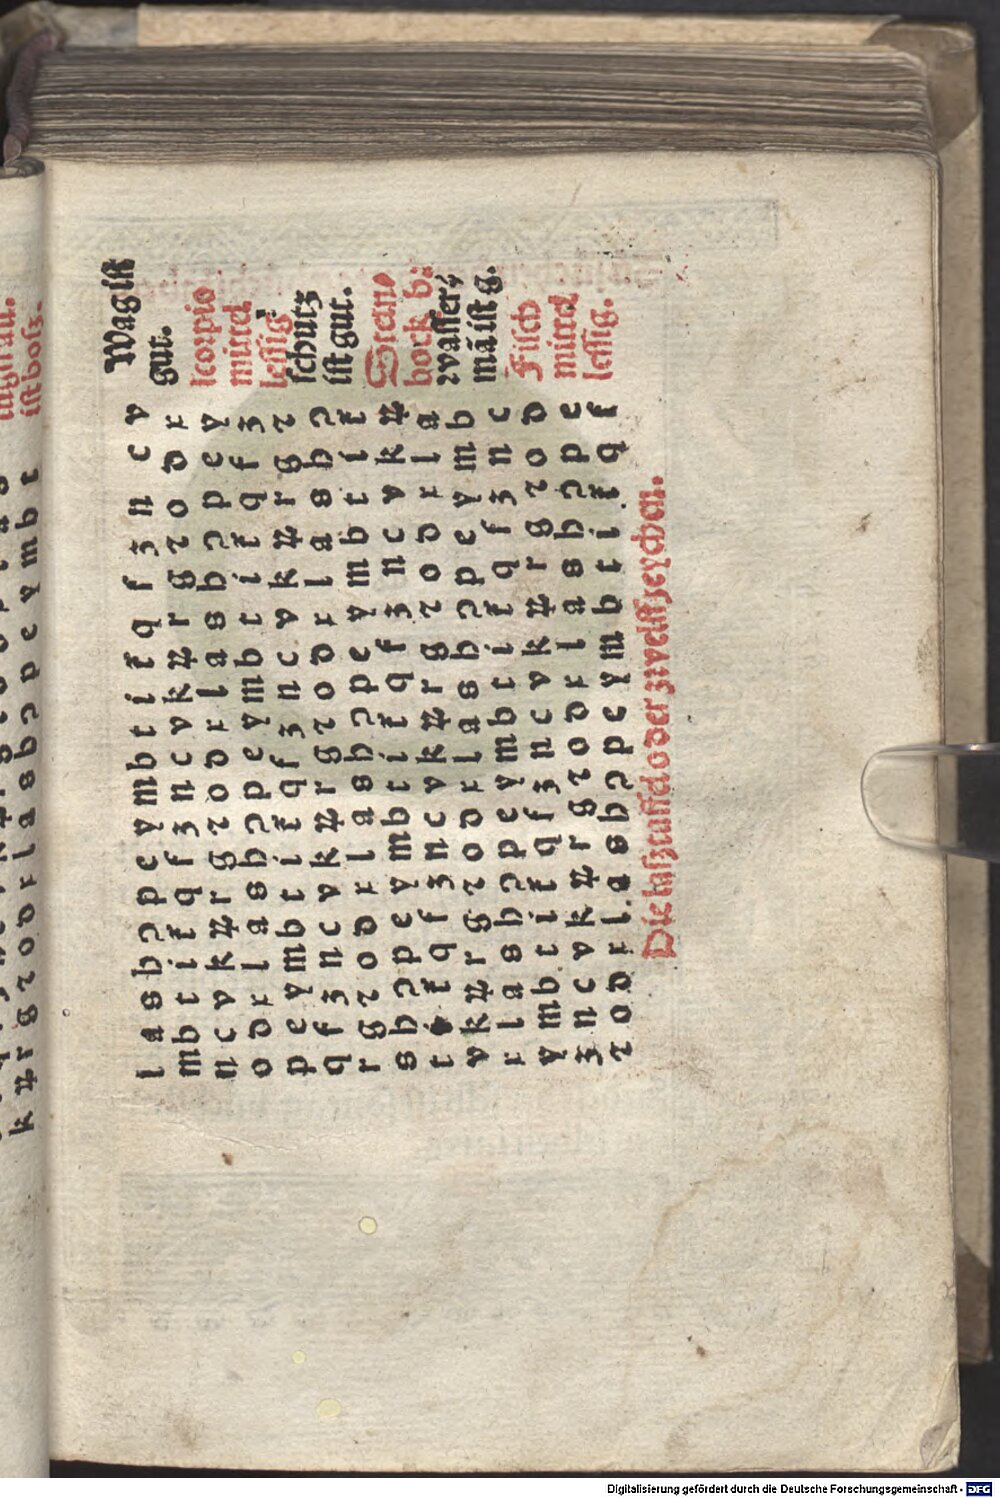 l a s h ɔ p e y m b t i ł q f ʒ n c v Wag ist
m b t i ł q f ʒ n c v k ꝝ r g ꝛ o d x gut.
n c v k ꝝ r g ꝛ o d x l a s h ɔ p e y scorpio
o d x l a s h ɔ p e y m b t i ł q f ʒ mittel
p e y m b t i ł q f ʒ n c v k ꝝ r g ꝛ lessig
q f ʒ n c v k ꝝ r g ꝛ o d x l a s h ɔ schutz
r g ꝛ o d x l a s h ɔ p e y m b t i ł ist gut.
s h ɔ p e y m b t i ł q f ʒ n c v k ꝝ Stein
t i ł q f ʒ n c v k ꝝ r g ꝛ o d x l a bock b:
v k ꝝ r g ꝛ o d x l a s h ɔ p e y m b wasser/
x l a s h ɔ p e y m b t i ł q f ʒ n c mā ist g.
y m b t i ł q f ʒ n c v k ꝝ r g ꝛ o d Fisch
ʒ n c v k ꝝ r g ꝛ o d x l a s h ɔ p e mittel
ꝛ o d x l a s h ɔ p e y m b t i ł q f lessig.
Die laßtaffel oder zwelff zeychen.
Digitalisierung gefördert durch die Deutsche Forschungsgemeinschaft - DFG